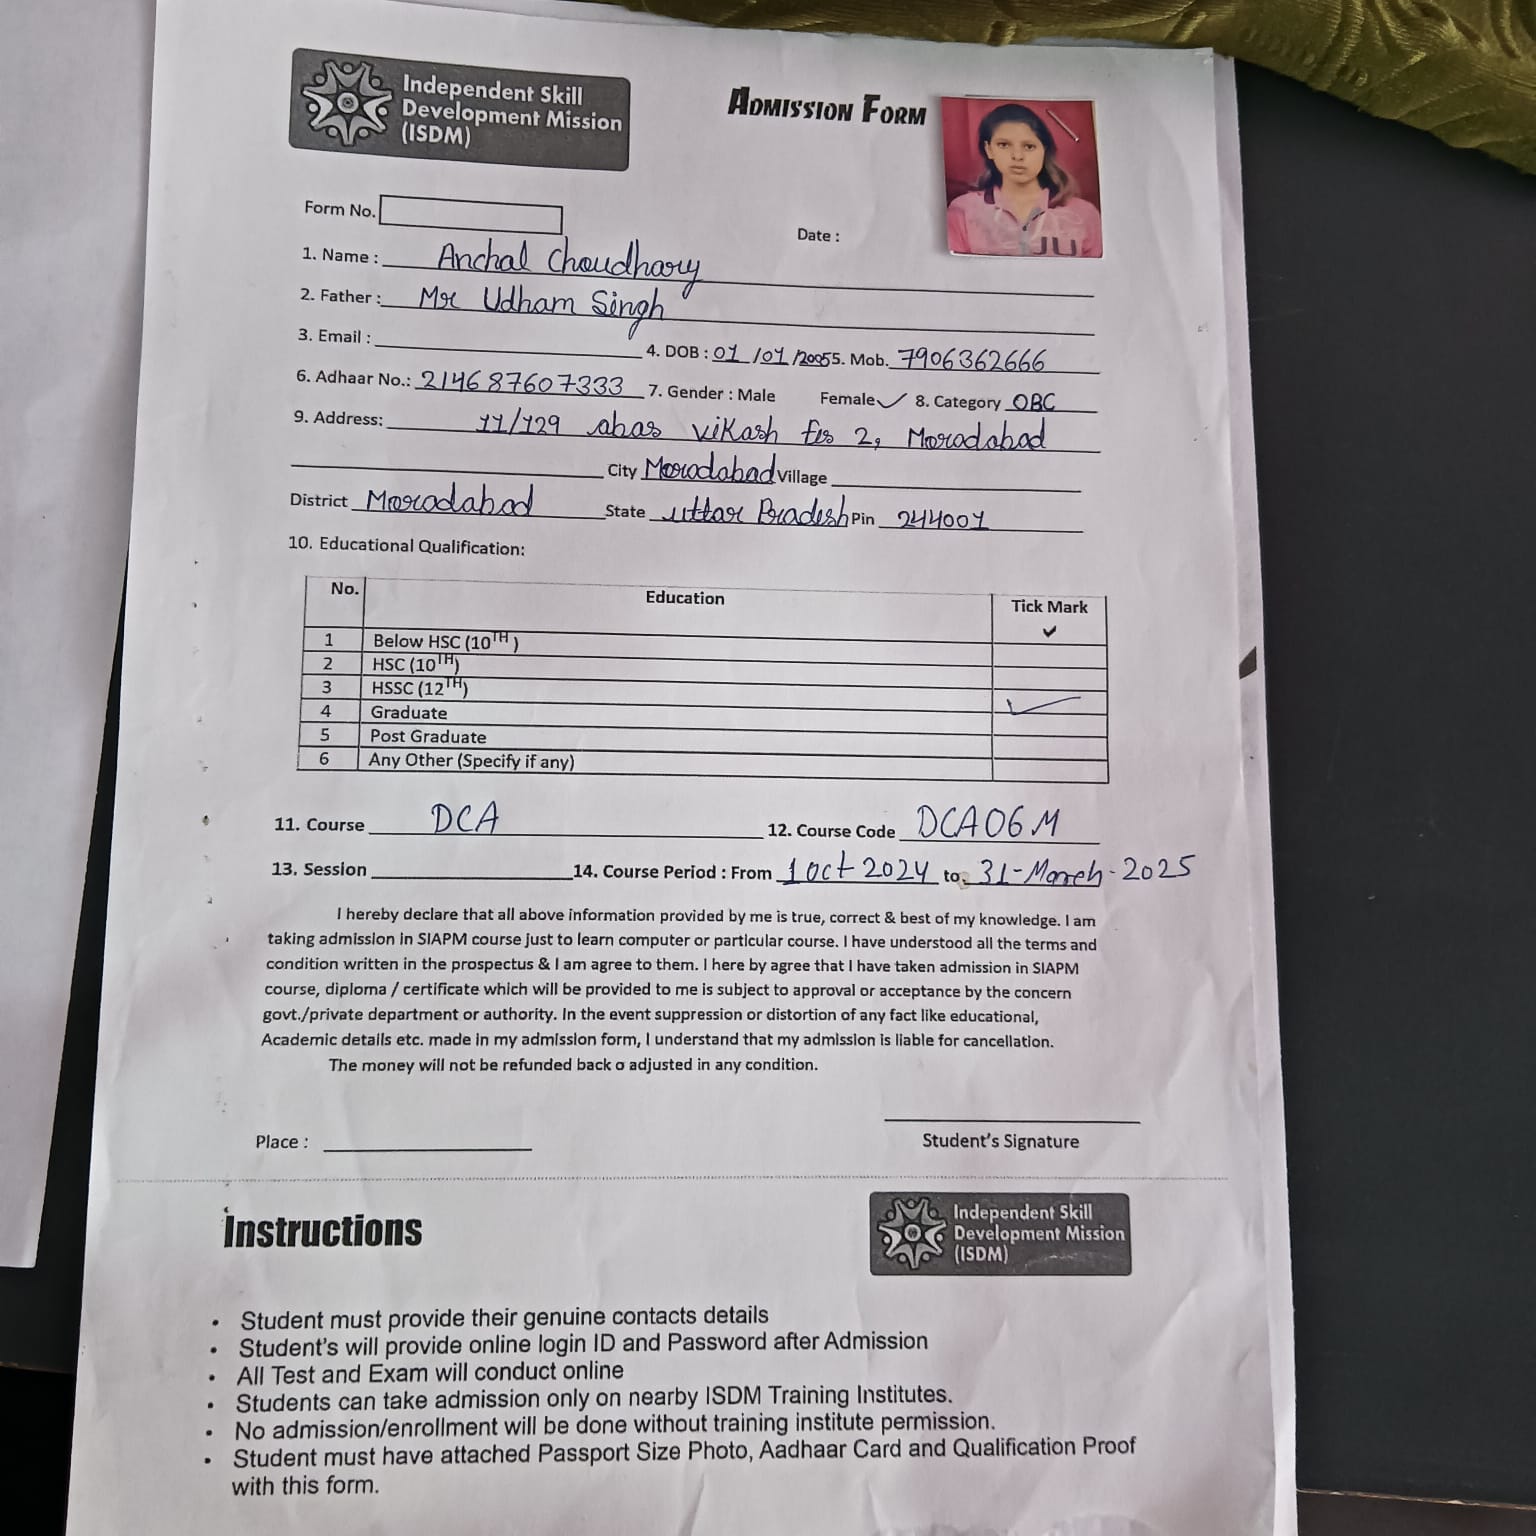 Independent Skill
Development Mission
(ISDM)
ADMISSION FORM
JU
Form No.
Date :
1. Name : Anchal Choudhary
2. Father : Mr Udham Singh
3. Email : 4. DOB : 01/01/2005 5. Mob. 7906362666
6. Adhaar No.: 214687607333 7. Gender : Male Female ✓ 8. Category OBC
9. Address: 11/129 abas vikash 2, Moradabad
City Moradabad Village
District Moradabad State uttar Pradesh Pin 244001
10. Educational Qualification:
No. Education Tick Mark
✓
1 Below HSC (10TH)
2 HSC (10TH)
3 HSSC (12TH) ✓
4 Graduate
5 Post Graduate
6 Any Other (Specify if any)
11. Course DCA 12. Course Code DCA06M
13. Session 14. Course Period : From 1 Oct 2024 to 31-March-2025
I hereby declare that all above information provided by me is true, correct & best of my knowledge. I am
taking admission in SIAPM course just to learn computer or particular course. I have understood all the terms and
condition written in the prospectus & I am agree to them. I here by agree that I have taken admission in SIAPM
course, diploma / certificate which will be provided to me is subject to approval or acceptance by the concern
govt./private department or authority. In the event suppression or distortion of any fact like educational,
Academic details etc. made in my admission form, I understand that my admission is liable for cancellation.
The money will not be refunded back o adjusted in any condition.
Place :
Student's Signature
Instructions
Independent Skill
Development Mission
(ISDM)
• Student must provide their genuine contacts details
• Student's will provide online login ID and Password after Admission
• All Test and Exam will conduct online
• Students can take admission only on nearby ISDM Training Institutes.
• No admission/enrollment will be done without training institute permission.
• Student must have attached Passport Size Photo, Aadhaar Card and Qualification Proof
with this form.